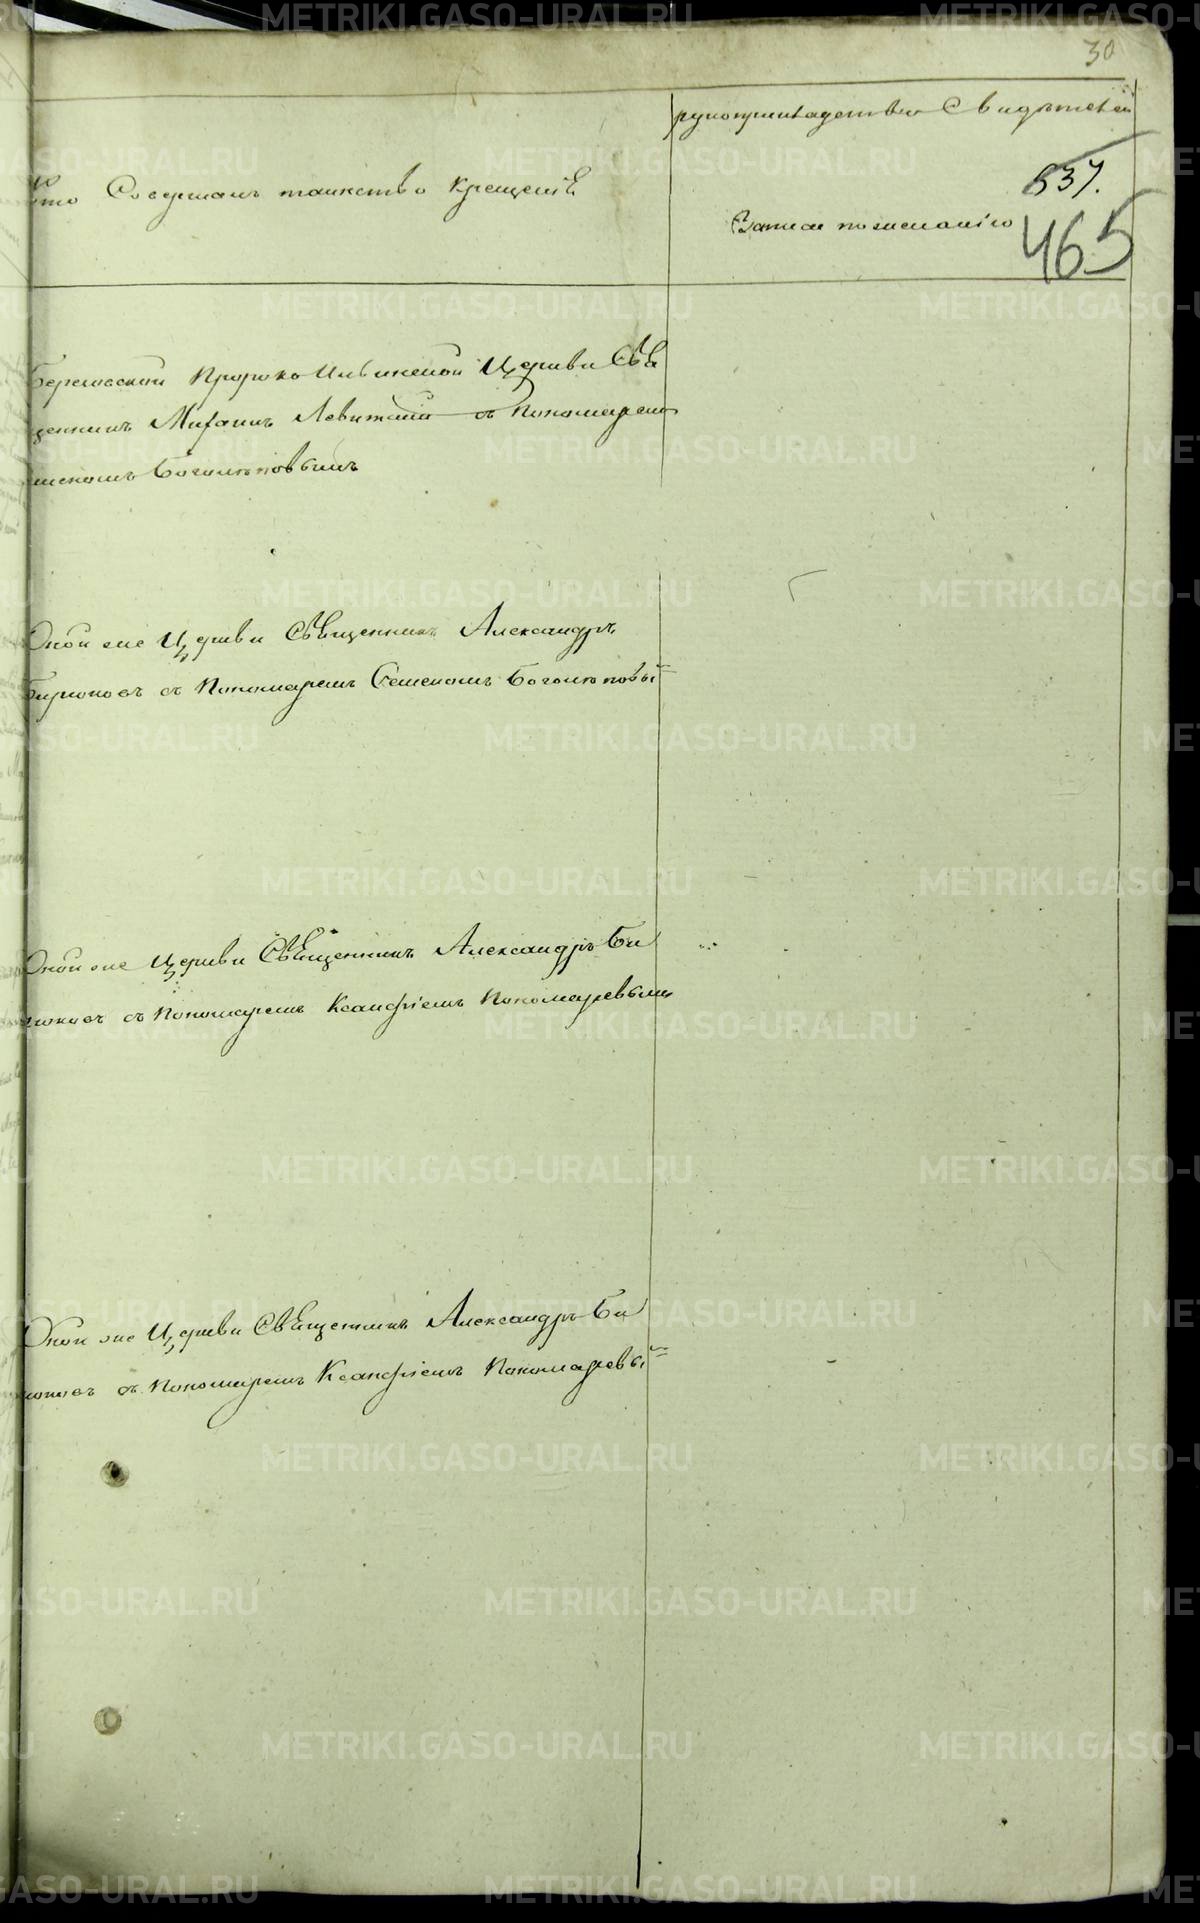 30
рукоприкладство Свидѣтелей
Кто Совершалъ таинство крещенія
537.
Записи по желанію
465
Пророко Ильинской Церкви Свя
щенникъ Левитскій съ Пономаремъ
Боголюповымъ
Оной же Церкви Священникъ Александръ
Бирюковъ съ Пономаремъ Семеномъ Боголюповы
Оной же Церкви Священникъ Александръ Би
рюковъ съ Пономаремъ Ксанфіемъ Пономаревымъ
Оной же Церкви Священникъ Александръ Би
рюковъ съ Пономаремъ Ксанфіемъ Пономаревы
METRIKI.GASO-URAL.RU